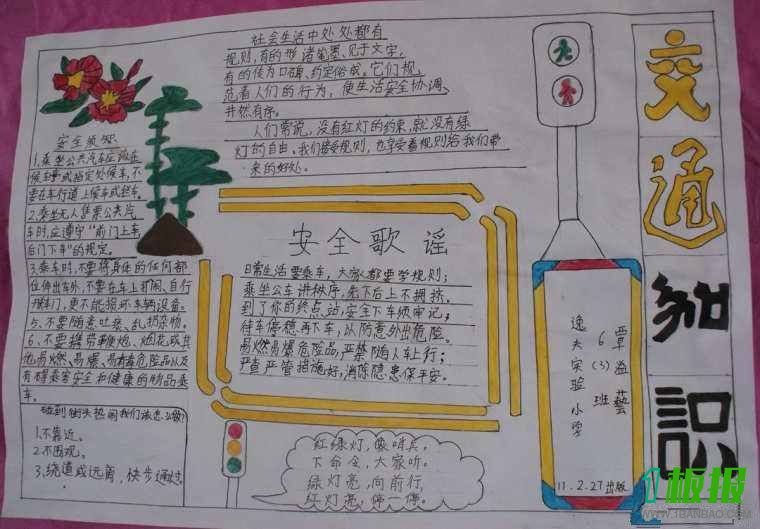 社会生活中处处都有
规则,有的形诸笔墨、见于文字,
有的传为口碑、约定俗成。它们规
范着人们的行为,使生活安全协调、
井然有序。
人们常说,没有红灯的约束,就没有绿
灯的自由。我们接受规则,也享受着规则给我们带
来的好处。
安全须知
1、乘坐公共汽车应该在
候车或指定处候车,不
要在车行道上候车或拦车。
2、乘坐无人售票公共汽
车时,应遵守“前门上车
后门下车”的规定。
3、乘车时,不要将身体的任何部
位伸出车外,不要在车上打闹、自行
开车门,更不能损坏车辆设备。
5、不要随意吐痰、乱扔杂物。
6、不要携带鞭炮、烟花,或其
他易燃、易爆、易有毒危险品以及
有碍乘客安全和健康的物品乘
车。
碰到街头热闹我们该怎么做?
1、不靠近。
2、不围观。
3、绕道或远离,快步通过。
安全歌谣
日常生活要乘车,大家都要学规则;
乘坐公车讲秩序,先下后上不拥挤。
到了你的终点站,安全下车须牢记;
待车停稳再下车,以防意外出危险。
易燃易爆危险品,严禁随人车上行;
严查严管措施好,消除隐患保平安。
红绿灯,像哨兵,
下命令,大家听。
绿灯亮,向前行,
红灯亮,停一停。
覃益藝
6(3)班
逸夫实验小学
11.2.27出版
交通知识
1板报
WWW.1BANBAO.COM